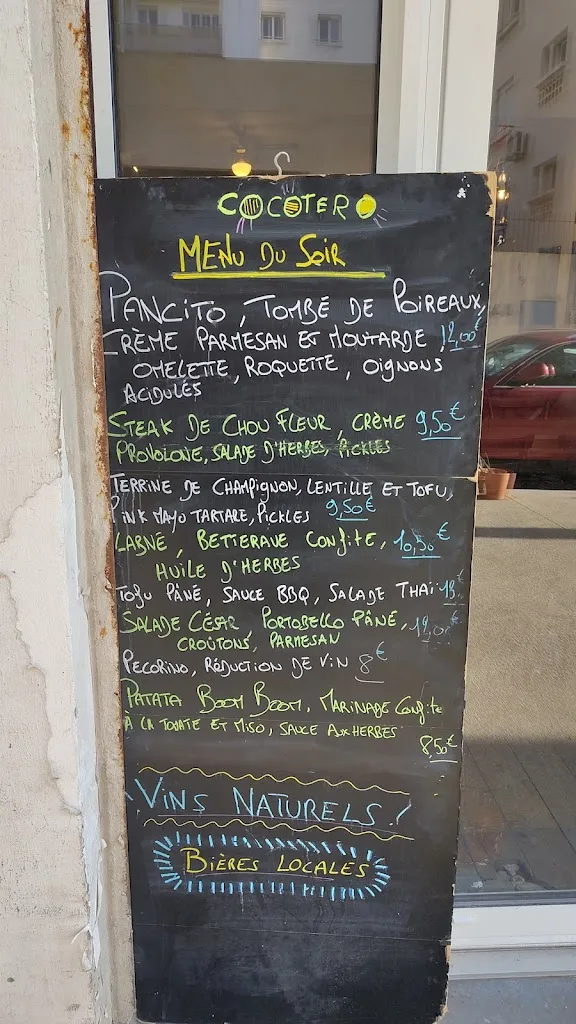 COCOTERO
MENU DU SOIR
PANCITO, TOMBÉ DE POIREAUX,
CRÈME PARMESAN ET MOUTARDE 12,00€
OMELETTE, ROQUETTE, OIGNONS
ACIDULÉS
STEAK DE CHOU FLEUR, CRÈME 9,50€
PROVOLONE, SALADE D'HERBES, PICKLES
TERRINE DE CHAMPIGNON, LENTILLE ET TOFU,
PINK MAYO TARTARE, PICKLES 9,50€
LABNÉ, BETTERAVE CONFITE, 10,50€
HUILE D'HERBES
TOFU PÂNÉ, SAUCE BBQ, SALADE THAÏ
SALADE CÉSAR PORTOBELLO PÂNÉ,
CROÛTONS, PARMESAN
PECORINO, RÉDUCTION DE VIN 8€
PATATA BOOM BOOM, MARINADE CONFITE
À LA TOMATE ET MISO, SAUCE AUX HERBES
8,50€
VINS NATURELS!
BIÈRES LOCALES